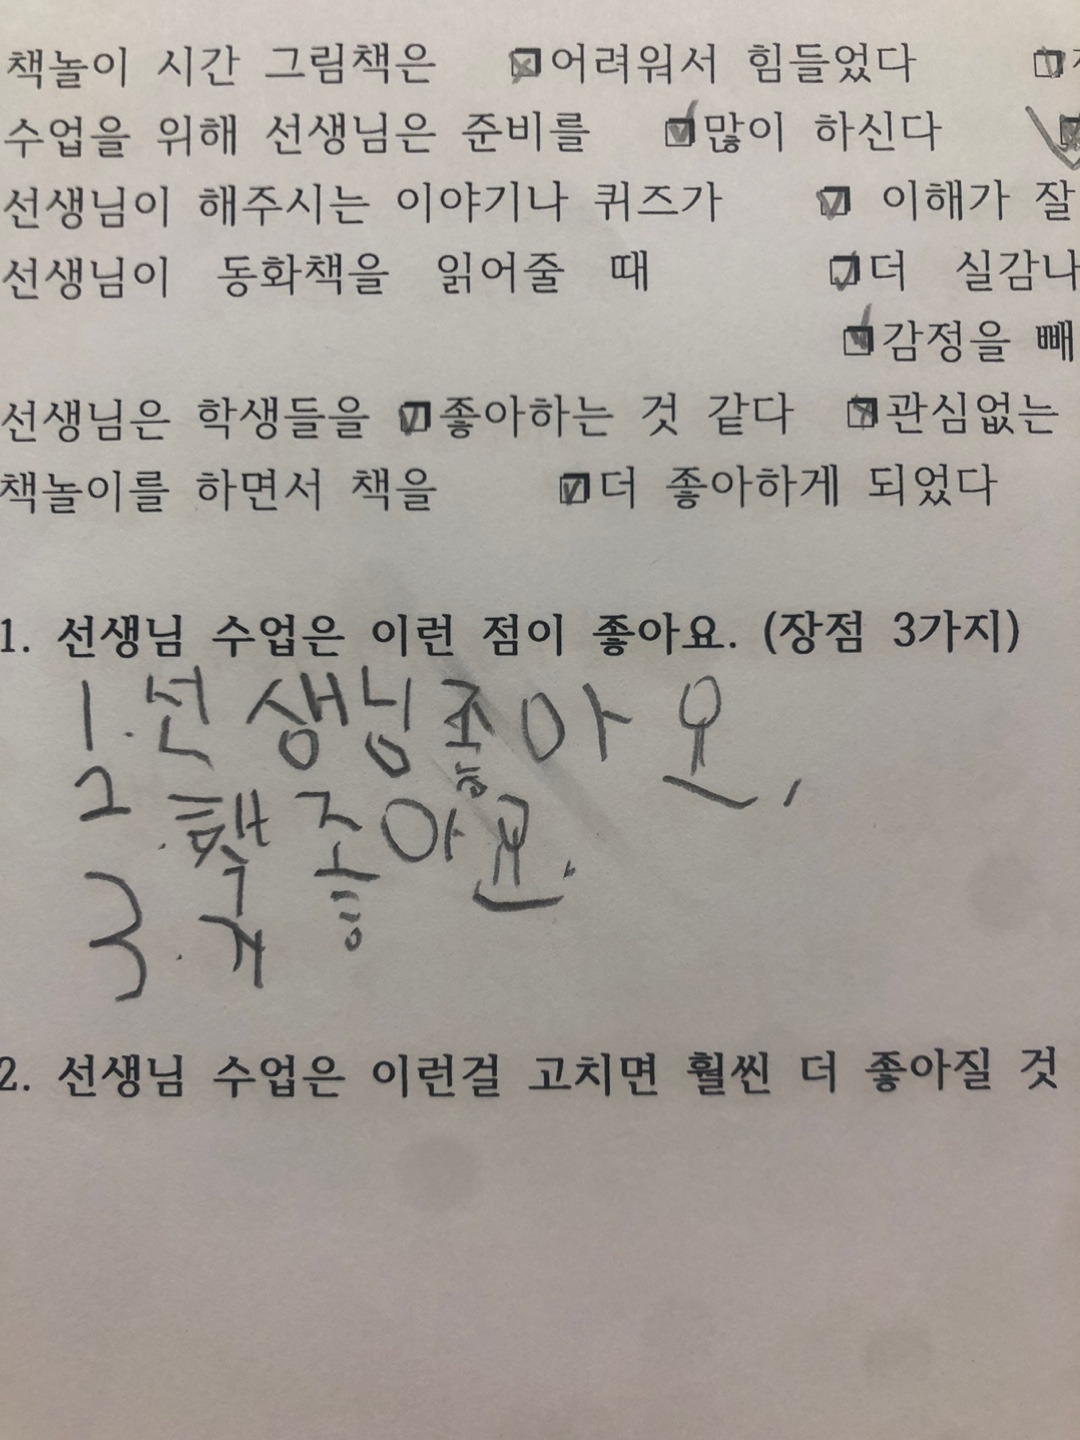 책놀이 시간 그림책은 어려워서 힘들었다
수업을 위해 선생님은 준비를 많이 하신다
선생님이 해주시는 이야기나 퀴즈가 이해가 잘
선생님이 동화책을 읽어줄 때 더 실감나
감정을 빼
선생님은 학생들을 좋아하는 것 같다 관심없는
책놀이를 하면서 책을 더 좋아하게 되었다
1. 선생님 수업은 이런 점이 좋아요. (장점 3가지)
1. 선생님 좋아요.
2. 책 좋아요.
3.
2. 선생님 수업은 이런걸 고치면 훨씬 더 좋아질 것